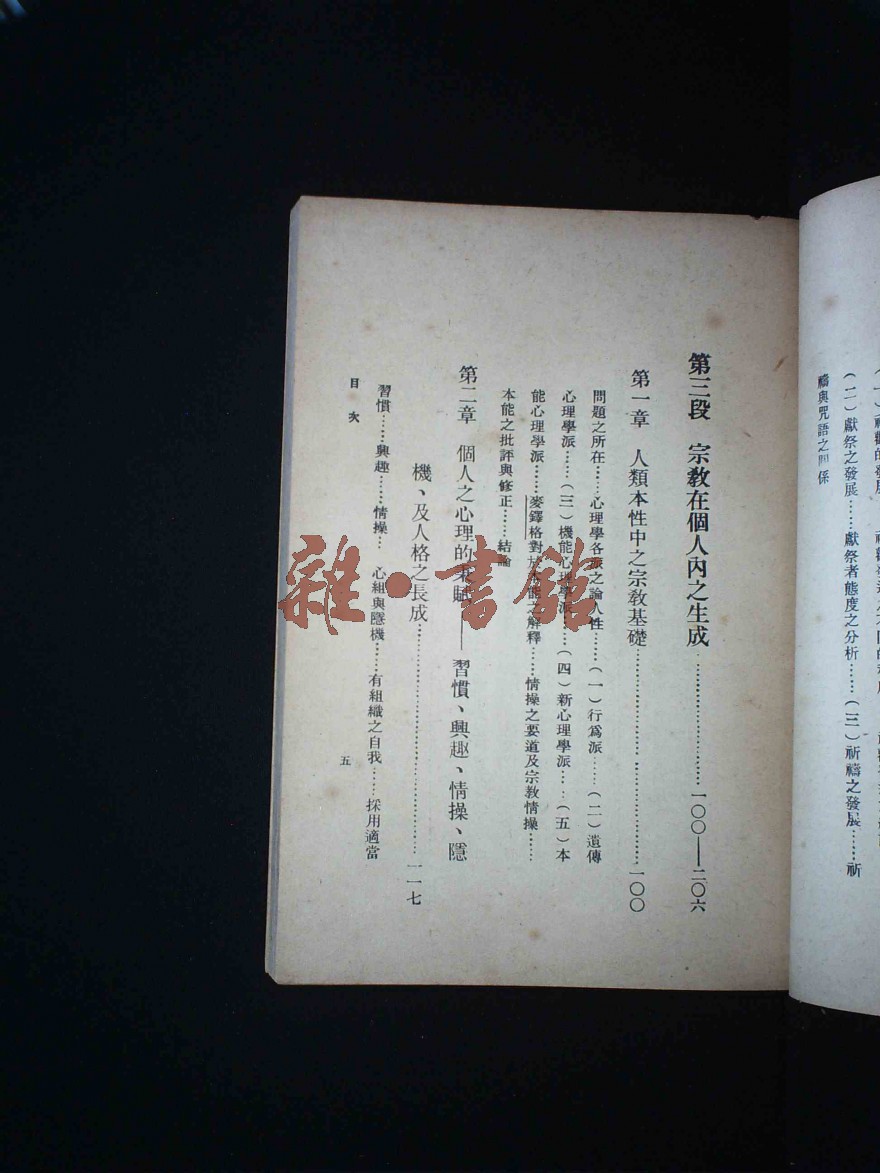 (二)獻祭之發展……獻祭者態度之分析……(三)祈禱之發展……祈
禱與咒語之關係
第三段 宗教在個人內之生成……一〇〇——二〇六
第一章 人類本性中之宗教基礎……一〇〇
問題之所在……心理學各派之論人性……(一)行爲派……(二)遺傳
心理學派……(三)機能心理學派……(四)新心理學派……(五)本
能心理學派……麥鐸格對於本能之解釋……情操之要道及宗教情操……
本能之批評與修正……結論
第二章 個人之心理的秉賦——習慣、興趣、情操、隱
機、及人格之長成……一一七
習慣……興趣……情操… 心組與隱機……有組織之自我……採用適當
目次
五
雜·書館